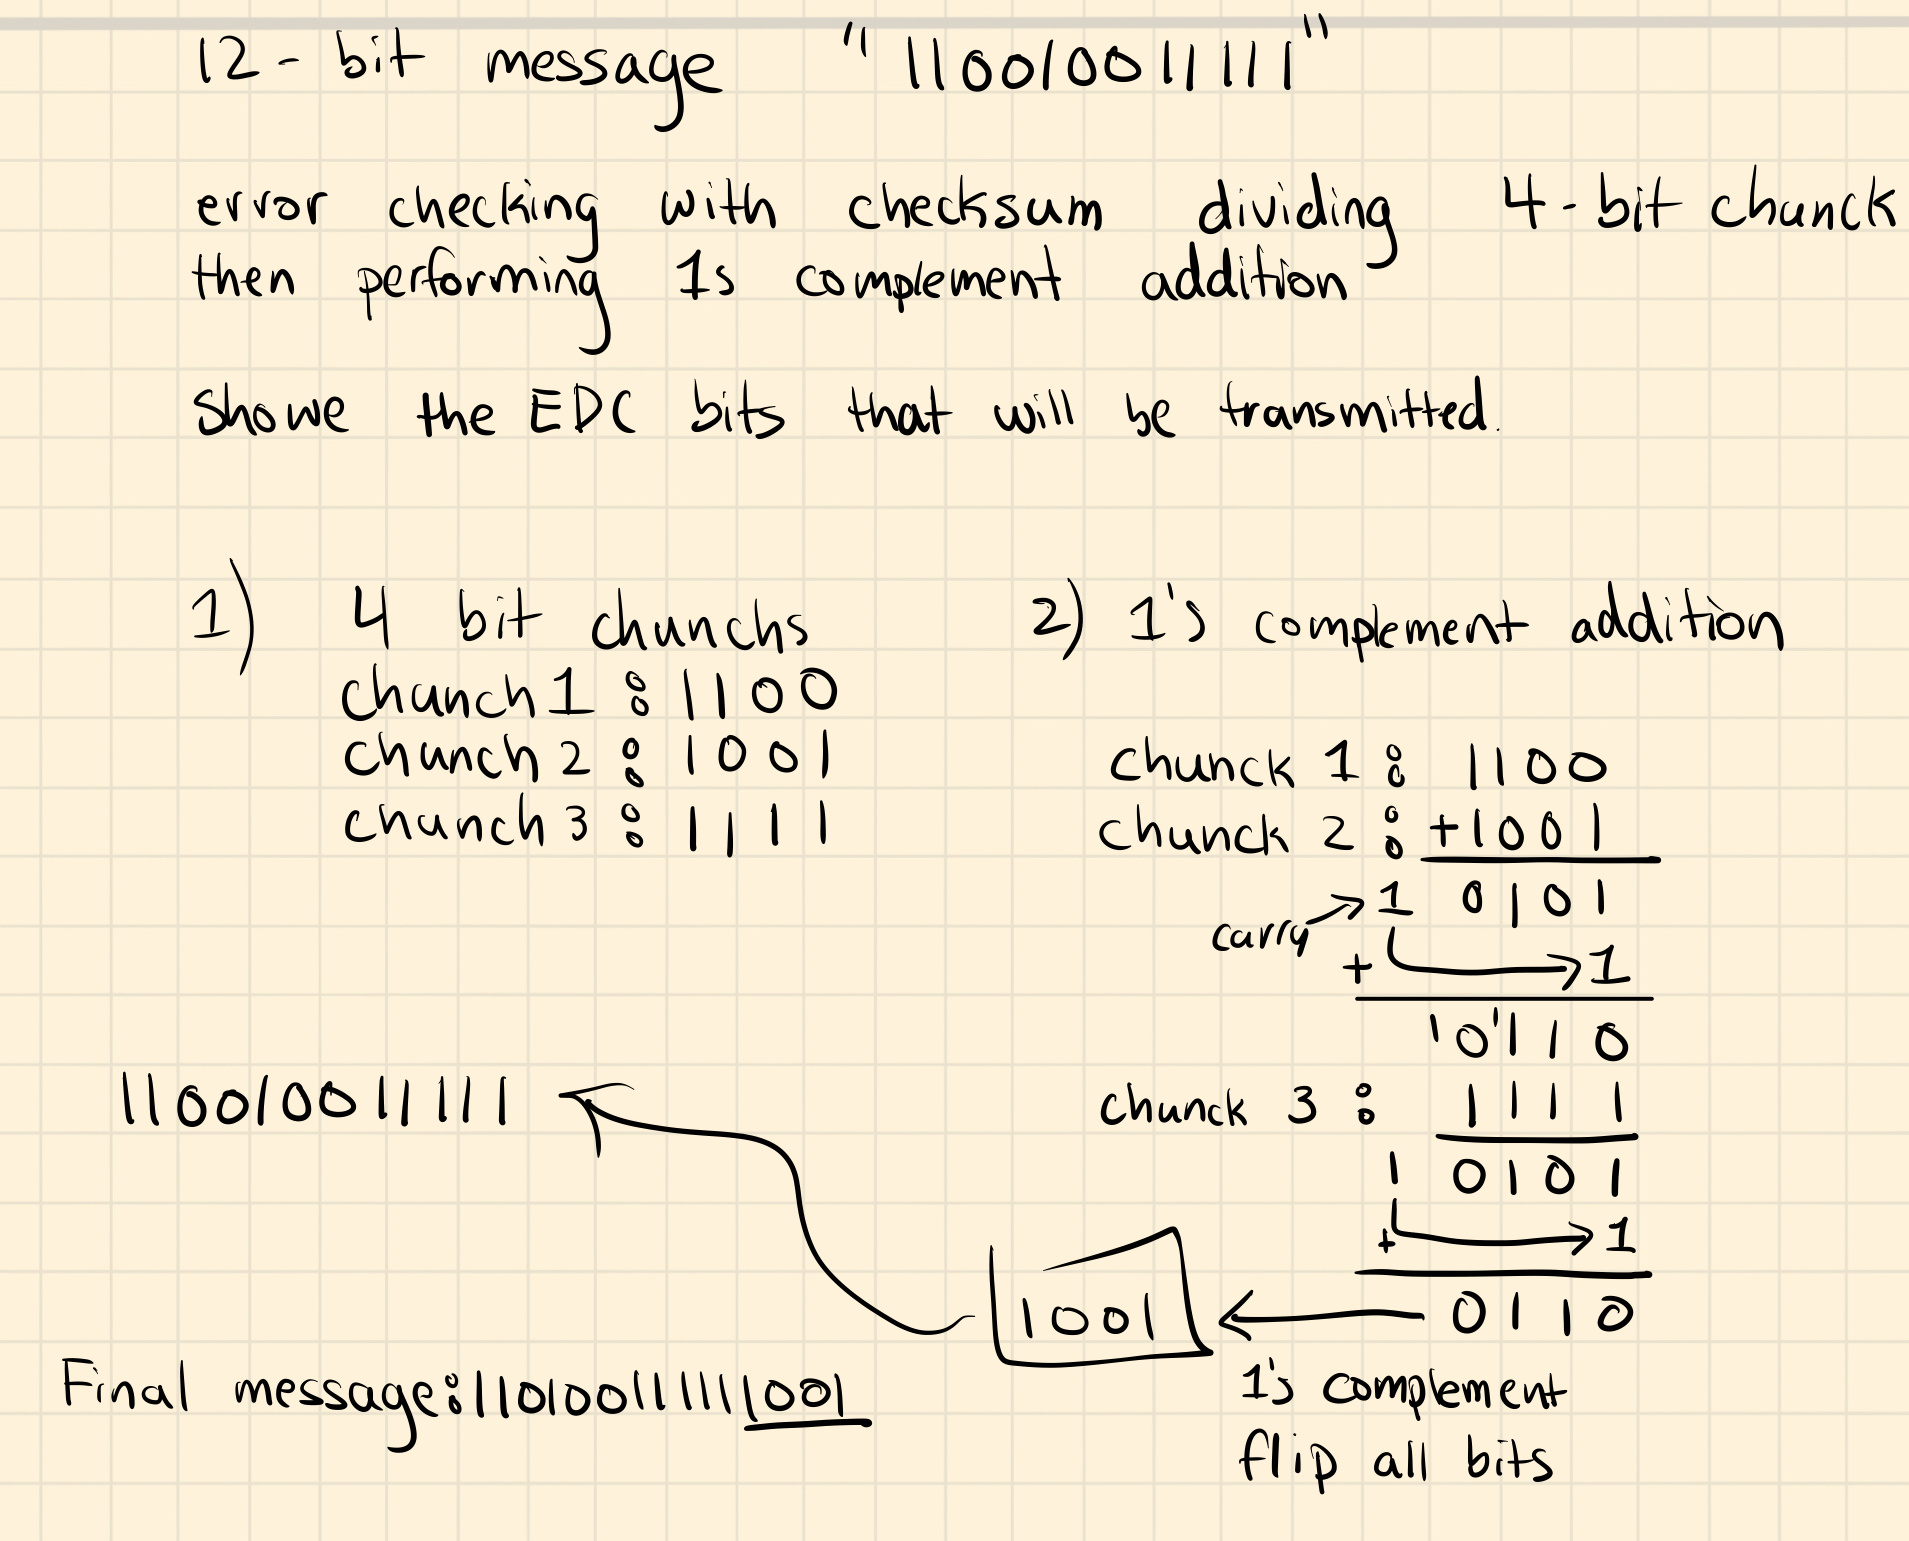 12-bit message "110010011111"
error checking with checksum dividing 4-bit chunck
then performing 1s complement addition
Showe the EDC bits that will be transmitted.
1) 4 bit chunchs
chunch 1 : 1100
chunch 2 : 1001
chunch 3 : 1111
2) 1's complement addition
chunck 1 : 1100
chunck 2 : +1001
carry → 1 0101
+ → 1
¹0¹110
chunck 3 : 1111
1 0101
+ → 1
0110
1001
1's complement
flip all bits
110010011111
Final message: 110100111111001